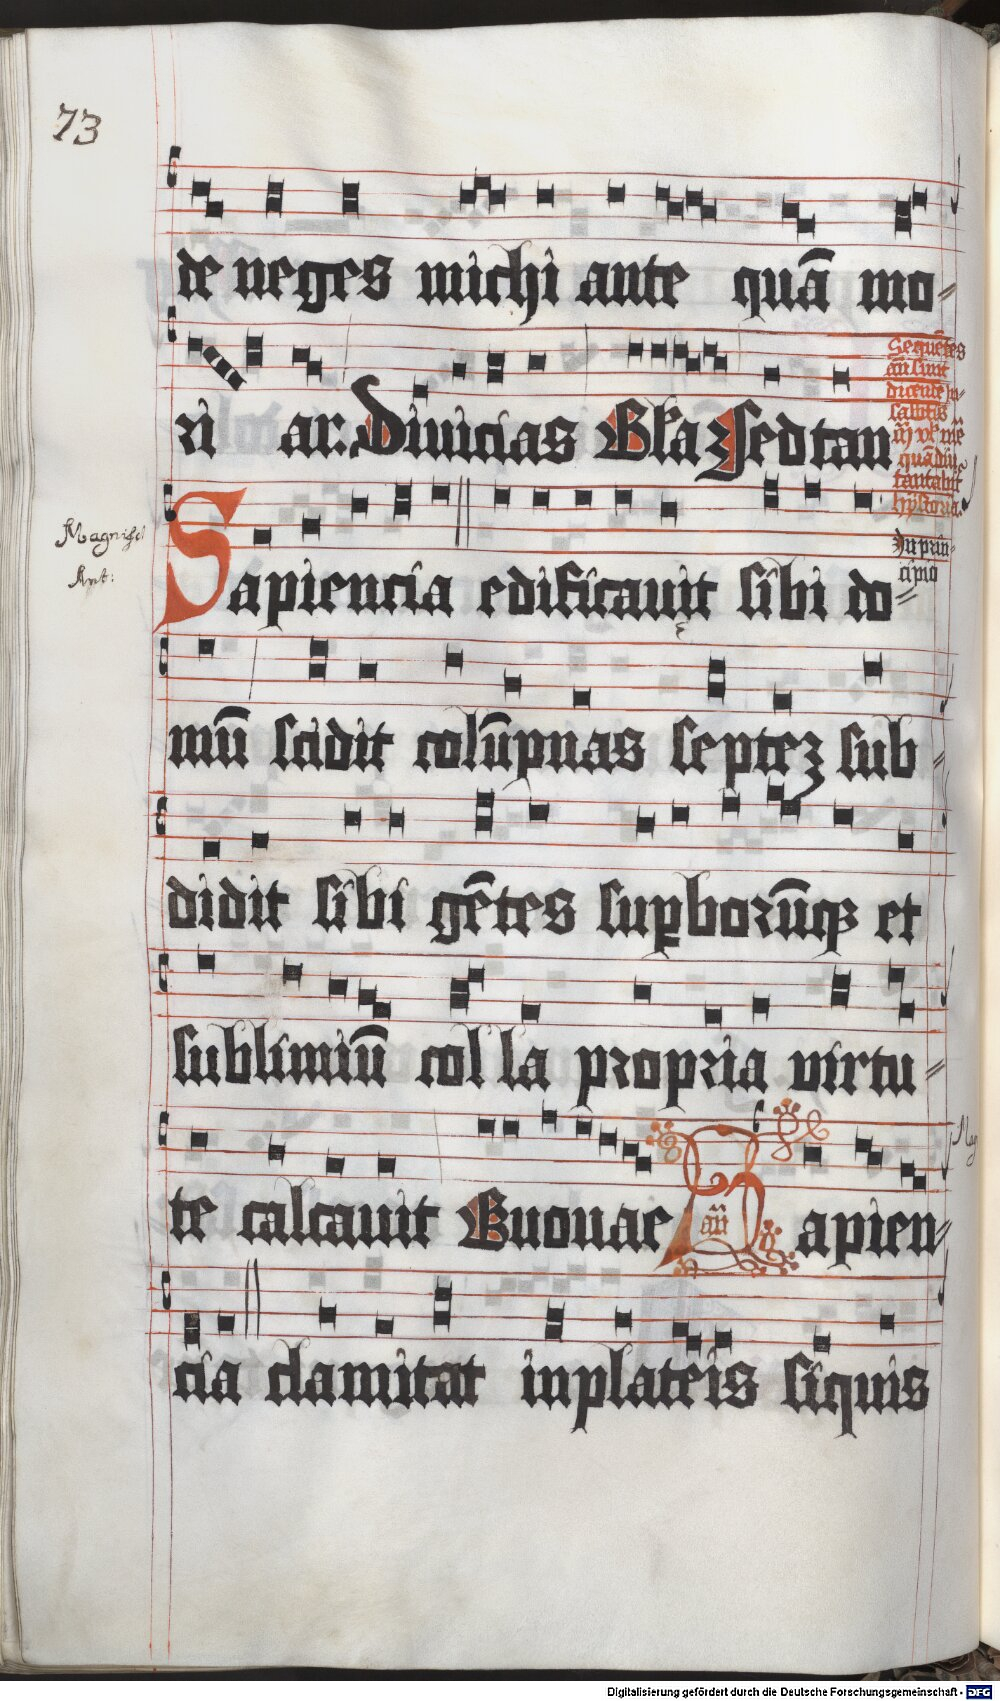 73
de neges michi ante quā mo=
ri ar. Diuicias Gl'a Sed tan
Sequētes
añ sunt
dicende in
sabbatis
quādiu
cantabit̄
hystoria.
In prin=
cipio
Magnific
Ant:
Sapiencia edificauit sibi do=
mū scidit colūpnas septez sub=
didit sibi gētes suꝑborūqȝ et
sublimiū col la propria virtu=
te calcauit Euouae añ Sapien=
Mag
cia clamitat inplateis siquis
Digitalisierung gefördert durch die Deutsche Forschungsgemeinschaft - DFG